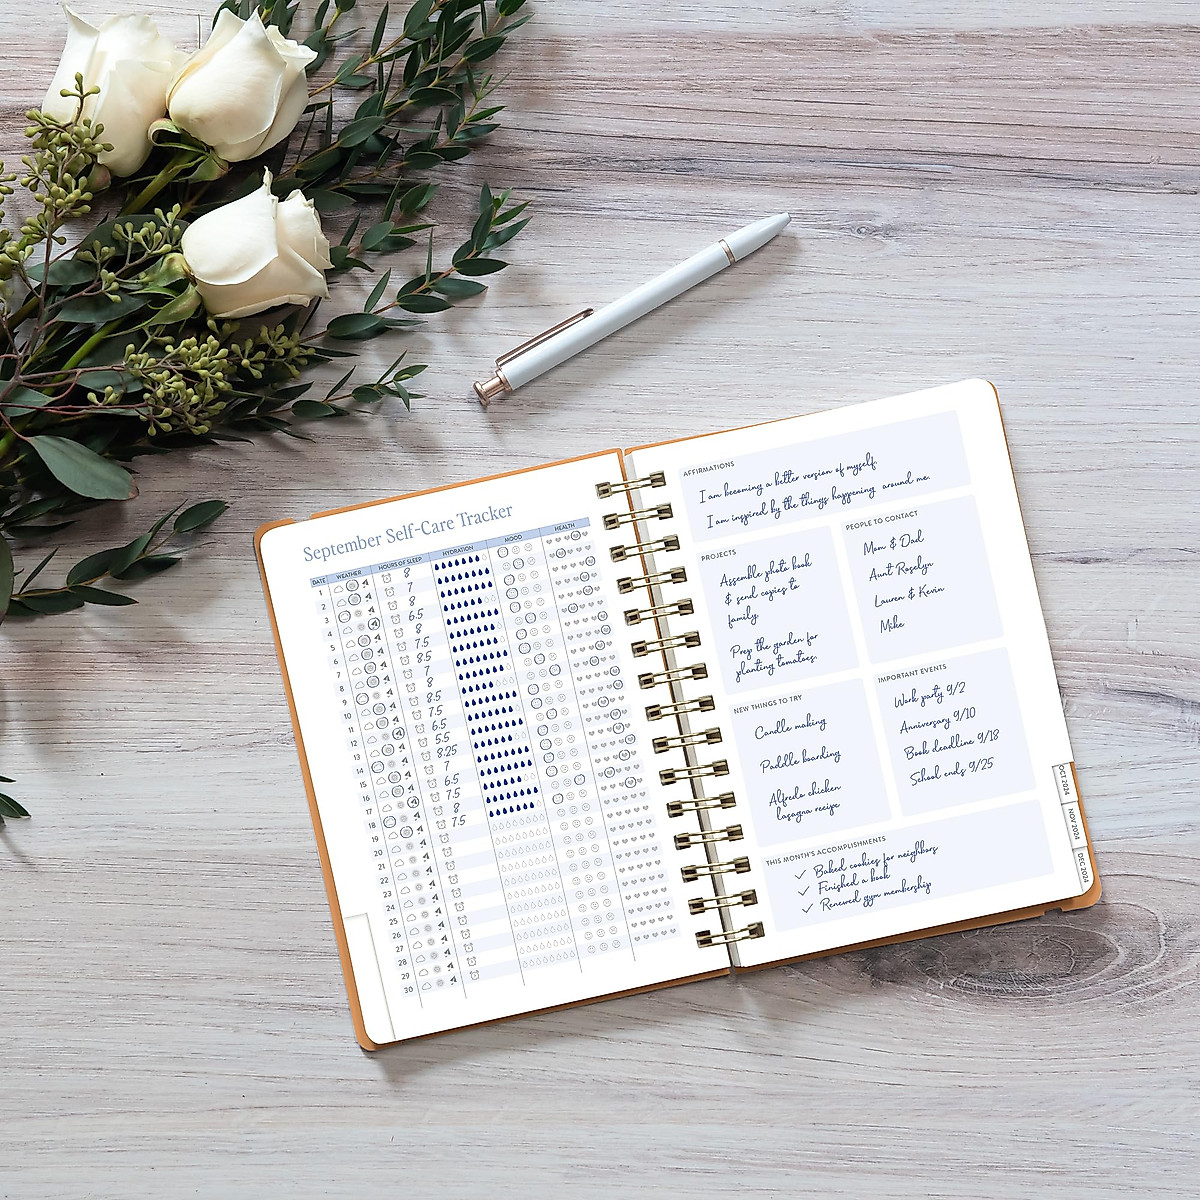 September Self-Care Tracker
DATE WEATHER HOURS OF SLEEP HYDRATION MOOD HEALTH
1 8
2 7
3 8
4 6.5
5 8
6 7.5
7 8.5
8 7
9 8
10 8.5
11 7.5
12 6.5
13 5.5
14 8.25
15 7
16 6.5
17 7.5
18 8
19 7.5
20
21
22
23
24
25
26
27
28
29
30
AFFIRMATIONS
I am becoming a better version of myself.
I am inspired by the things happening around me.
PROJECTS
Assemble photo book
& send copies to
family
Prep the garden for
planting tomatoes.
PEOPLE TO CONTACT
Mom & Dad
Aunt Roselyn
Lauren & Kevin
Mike
NEW THINGS TO TRY
Candle making
Paddle boarding
Alfredo chicken
lasagna recipe
IMPORTANT EVENTS
Work party 9/2
Anniversary 9/10
Book deadline 9/18
School ends 9/25
THIS MONTH'S ACCOMPLISHMENTS
Baked cookies for neighbors
Finished a book
Renewed gym membership
OCT 2024
NOV 2024
DEC 2024